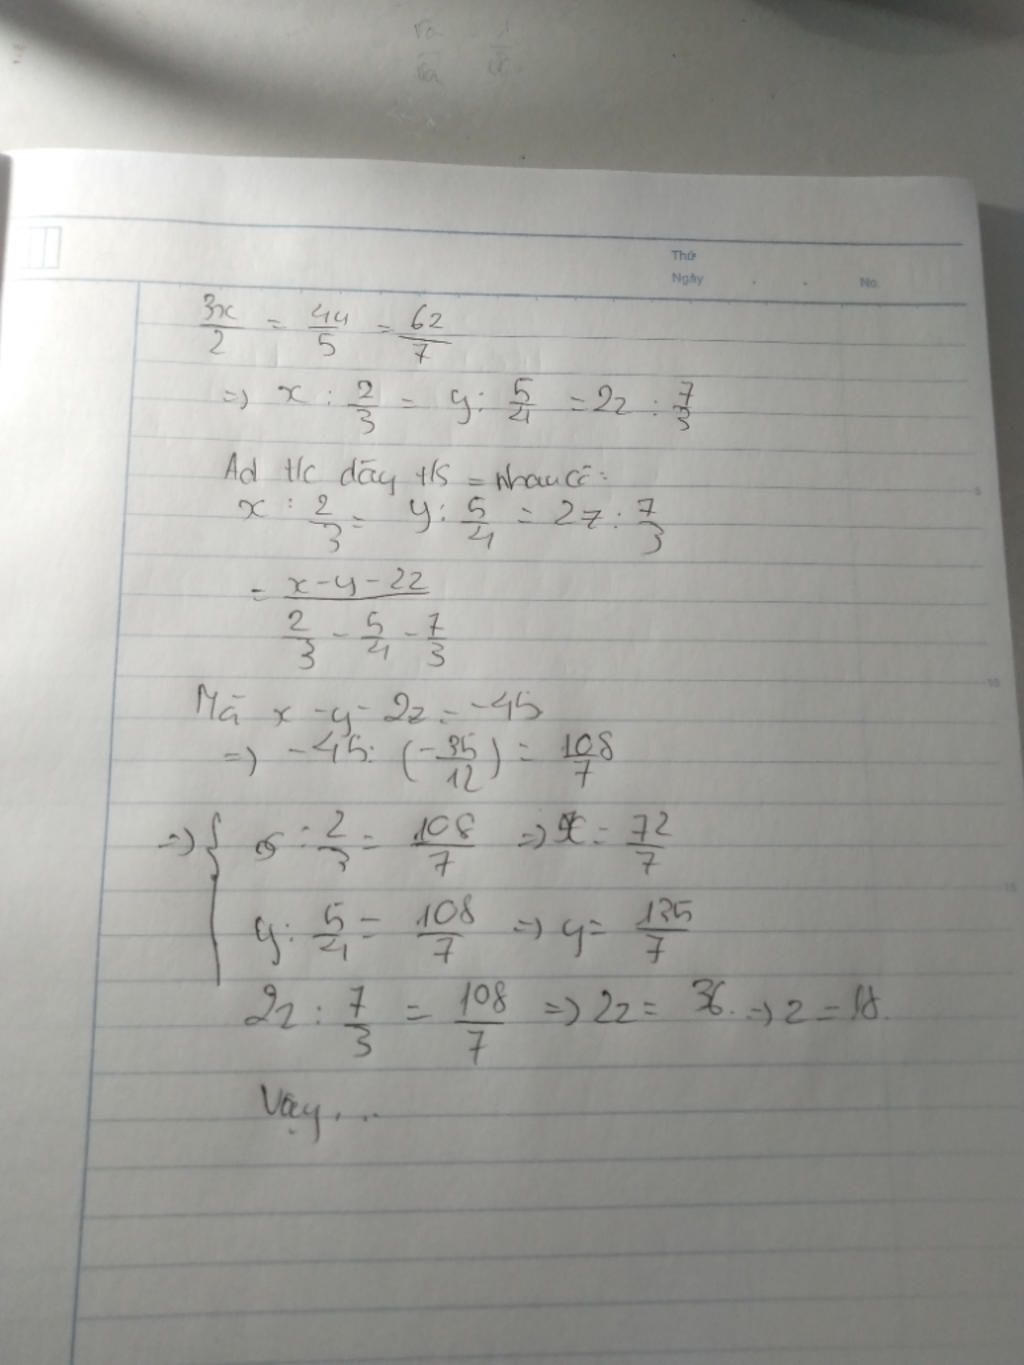 Thứ
Ngày . . No.
3x/2 = 4y/5 = 6z/7
=> x : 2/3 = y : 5/4 = 2z : 7/3
Ad t/c dãy t/s = nhau có:
x : 2/3 = y : 5/4 = 2z : 7/3
= (x - y - 2z)/(2/3 - 5/4 - 7/3)
Mà x - y - 2z = -45
=> -45 : (-35/12) = 108/7
=> { x : 2/3 = 108/7 => x = 72/7
y : 5/4 = 108/7 => y = 135/7
2z : 7/3 = 108/7 => 2z = 36. => z = 18.
Vậy ...